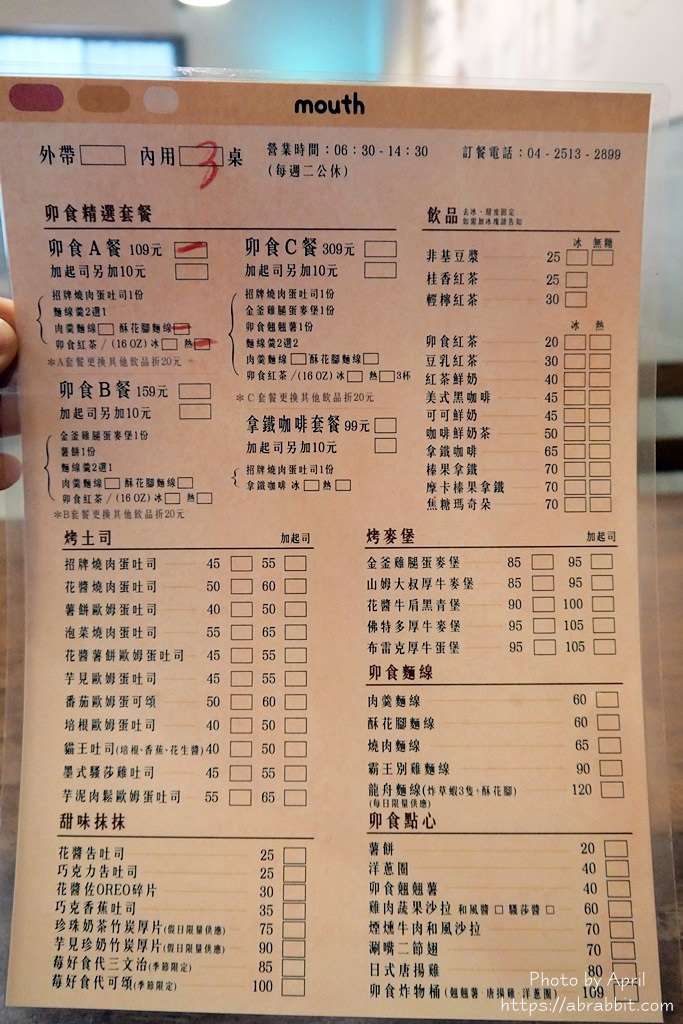 mouth
外帶 內用 3 桌
營業時間：06:30-14:30
(每週二公休)
訂餐電話：04-2513-2899
卯食精選套餐
卯食A餐 109元
加起司另加10元
招牌燒肉蛋吐司1份
麵線羹2選1
肉羹麵線 酥花腳麵線
卯食紅茶/(16OZ) 冰 熱
*A套餐更換其他飲品折20元
卯食B餐 159元
加起司另加10元
金釜雞腿蛋麥堡1份
薯餅1份
麵線羹2選1
肉羹麵線 酥花腳麵線
卯食紅茶/(16OZ) 冰 熱
*B套餐更換其他飲品折20元
卯食C餐 309元
加起司另加10元
招牌燒肉蛋吐司1份
金釜雞腿蛋麥堡1份
卯食翹翹薯1份
麵線羹2選2
肉羹麵線 酥花腳麵線
卯食紅茶/(16OZ) 冰 熱 3杯
*C套餐更換其他飲品折20元
拿鐵咖啡套餐 99元
加起司另加10元
招牌燒肉蛋吐司1份
拿鐵咖啡 冰 熱
飲品 去冰、甜度固定
冰 無糖
非基豆漿 25
桂香紅茶 25
輕檸紅茶 30
冰 熱
卯食紅茶 20
豆乳紅茶 30
紅茶鮮奶 40
美式黑咖啡 45
可可鮮奶 45
咖啡鮮奶茶 50
拿鐵咖啡 65
榛果拿鐵 70
摩卡榛果拿鐵 70
焦糖瑪奇朵 70
烤土司 加起司
招牌燒肉蛋吐司 45 55
花醬燒肉蛋吐司 50 60
薯餅歐姆蛋吐司 40 50
泡菜燒肉蛋吐司 55 65
花醬薯餅歐姆蛋吐司 45 55
芋見歐姆蛋吐司 45 55
番茄歐姆蛋可頌 50 60
培根歐姆蛋吐司 40 50
貓王吐司(培根、香蕉、花生醬) 40 50
墨式騷莎雞吐司 45 55
芋泥肉鬆歐姆蛋吐司 55 65
甜味抹抹
花醬告吐司 25
巧克力告吐司 25
花醬佐OREO碎片 30
巧克香蕉吐司 35
珍珠奶茶竹炭厚片(假日限量供應) 75
芋見珍奶竹炭厚片(假日限量供應) 90
莓好食代三文治(季節限定) 85
莓好食代可頌(季節限定) 100
烤麥堡 加起司
金釜雞腿蛋麥堡 85 95
山姆大叔厚牛麥堡 85 95
花醬牛肩黑青堡 90 100
佛特多厚牛麥堡 95 105
布雷克厚牛蛋堡 95 105
卯食麵線
肉羹麵線 60
酥花腳麵線 60
燒肉麵線 65
霸王別雞麵線 90
龍舟麵線(炸草蝦3隻、酥花腳) 120
(每日限量供應)
卯食點心
薯餅 20
洋蔥圈 40
卯食翹翹薯 40
雞肉蔬果沙拉 和風醬 騷莎醬 60
煙燻牛肉和風沙拉 70
涮嘴二節翅 70
日式唐揚雞 80
卯食炸物桶(翹翹薯、唐揚雞、洋蔥圈) 109
Photo by April
https://abrabbit.com